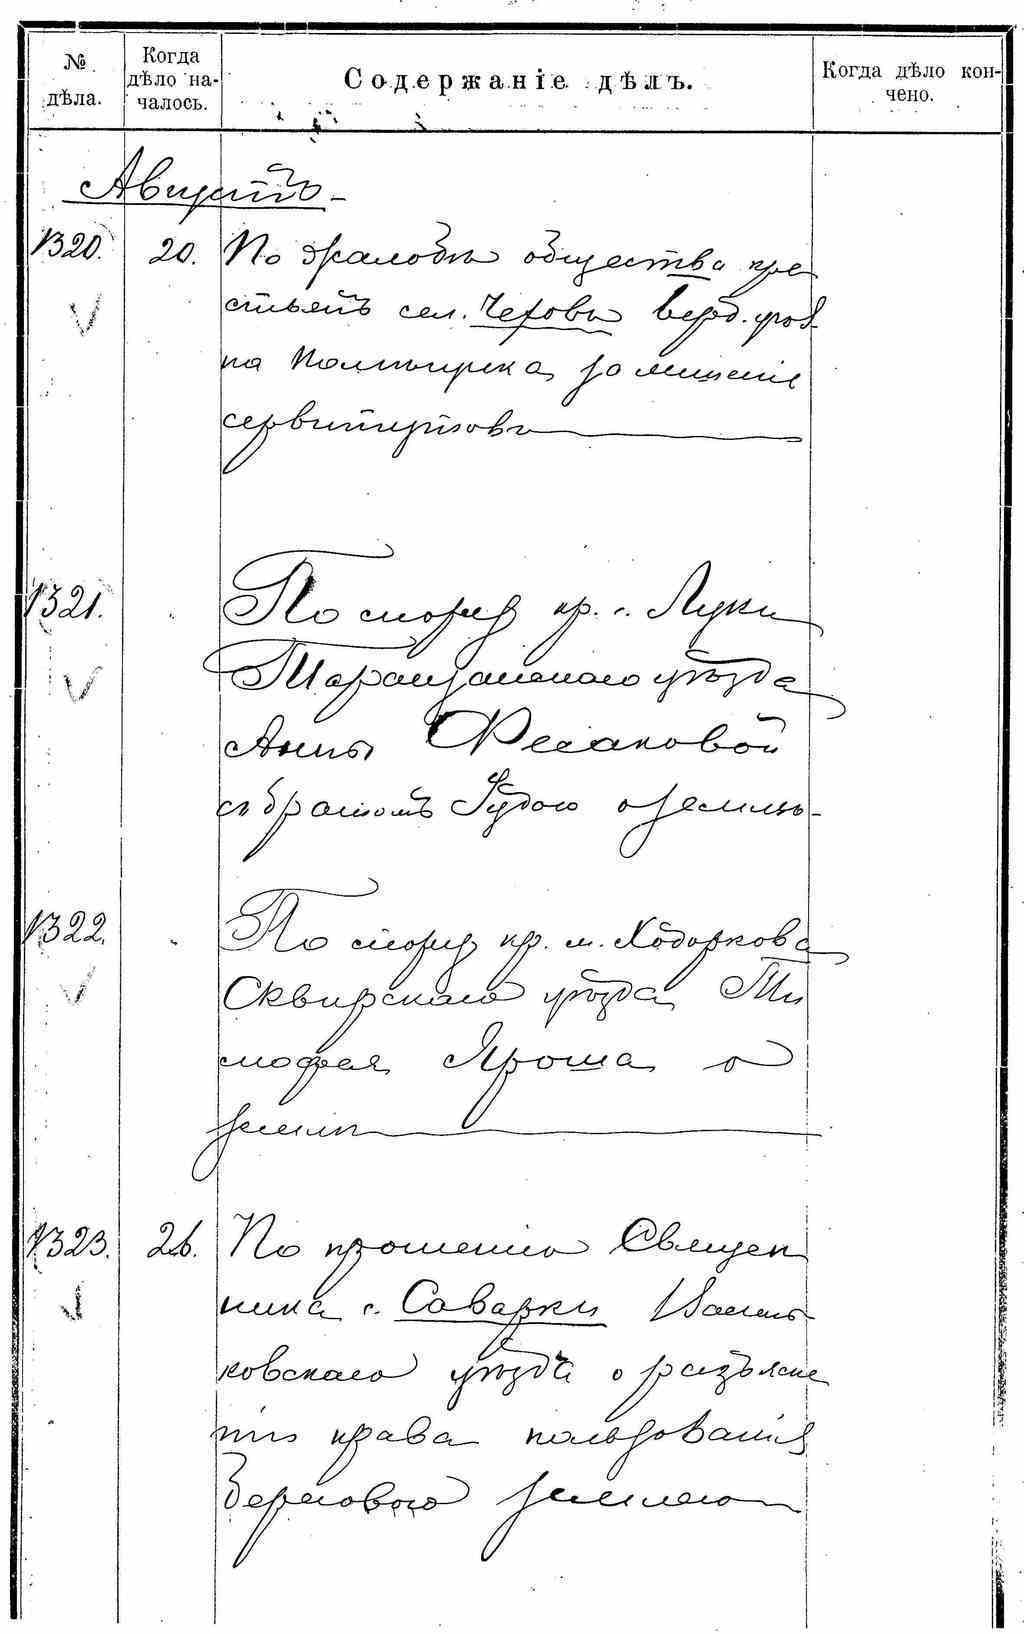 № дѣла.
Когда дѣло началось.
Содержаніе дѣлъ.
Когда дѣло кончено.
Августъ
1320. 20. По жалобѣ общества кре
стьянъ сел.
на за лишеніе
сервитутовъ
1321. По спору кр. с. Луки
Таращанскаго уѣзда
Анны
съ братомъ о землѣ.
1322. По спору кр. м. Ходоркова
Сквирскаго уѣзда Ти
мофея Яроша о
землѣ
1323. 26. По прошенію Священ
ника с. Саварки Василь
ковскаго уѣзда о разъясне
ніи права пользованія
береговою землею